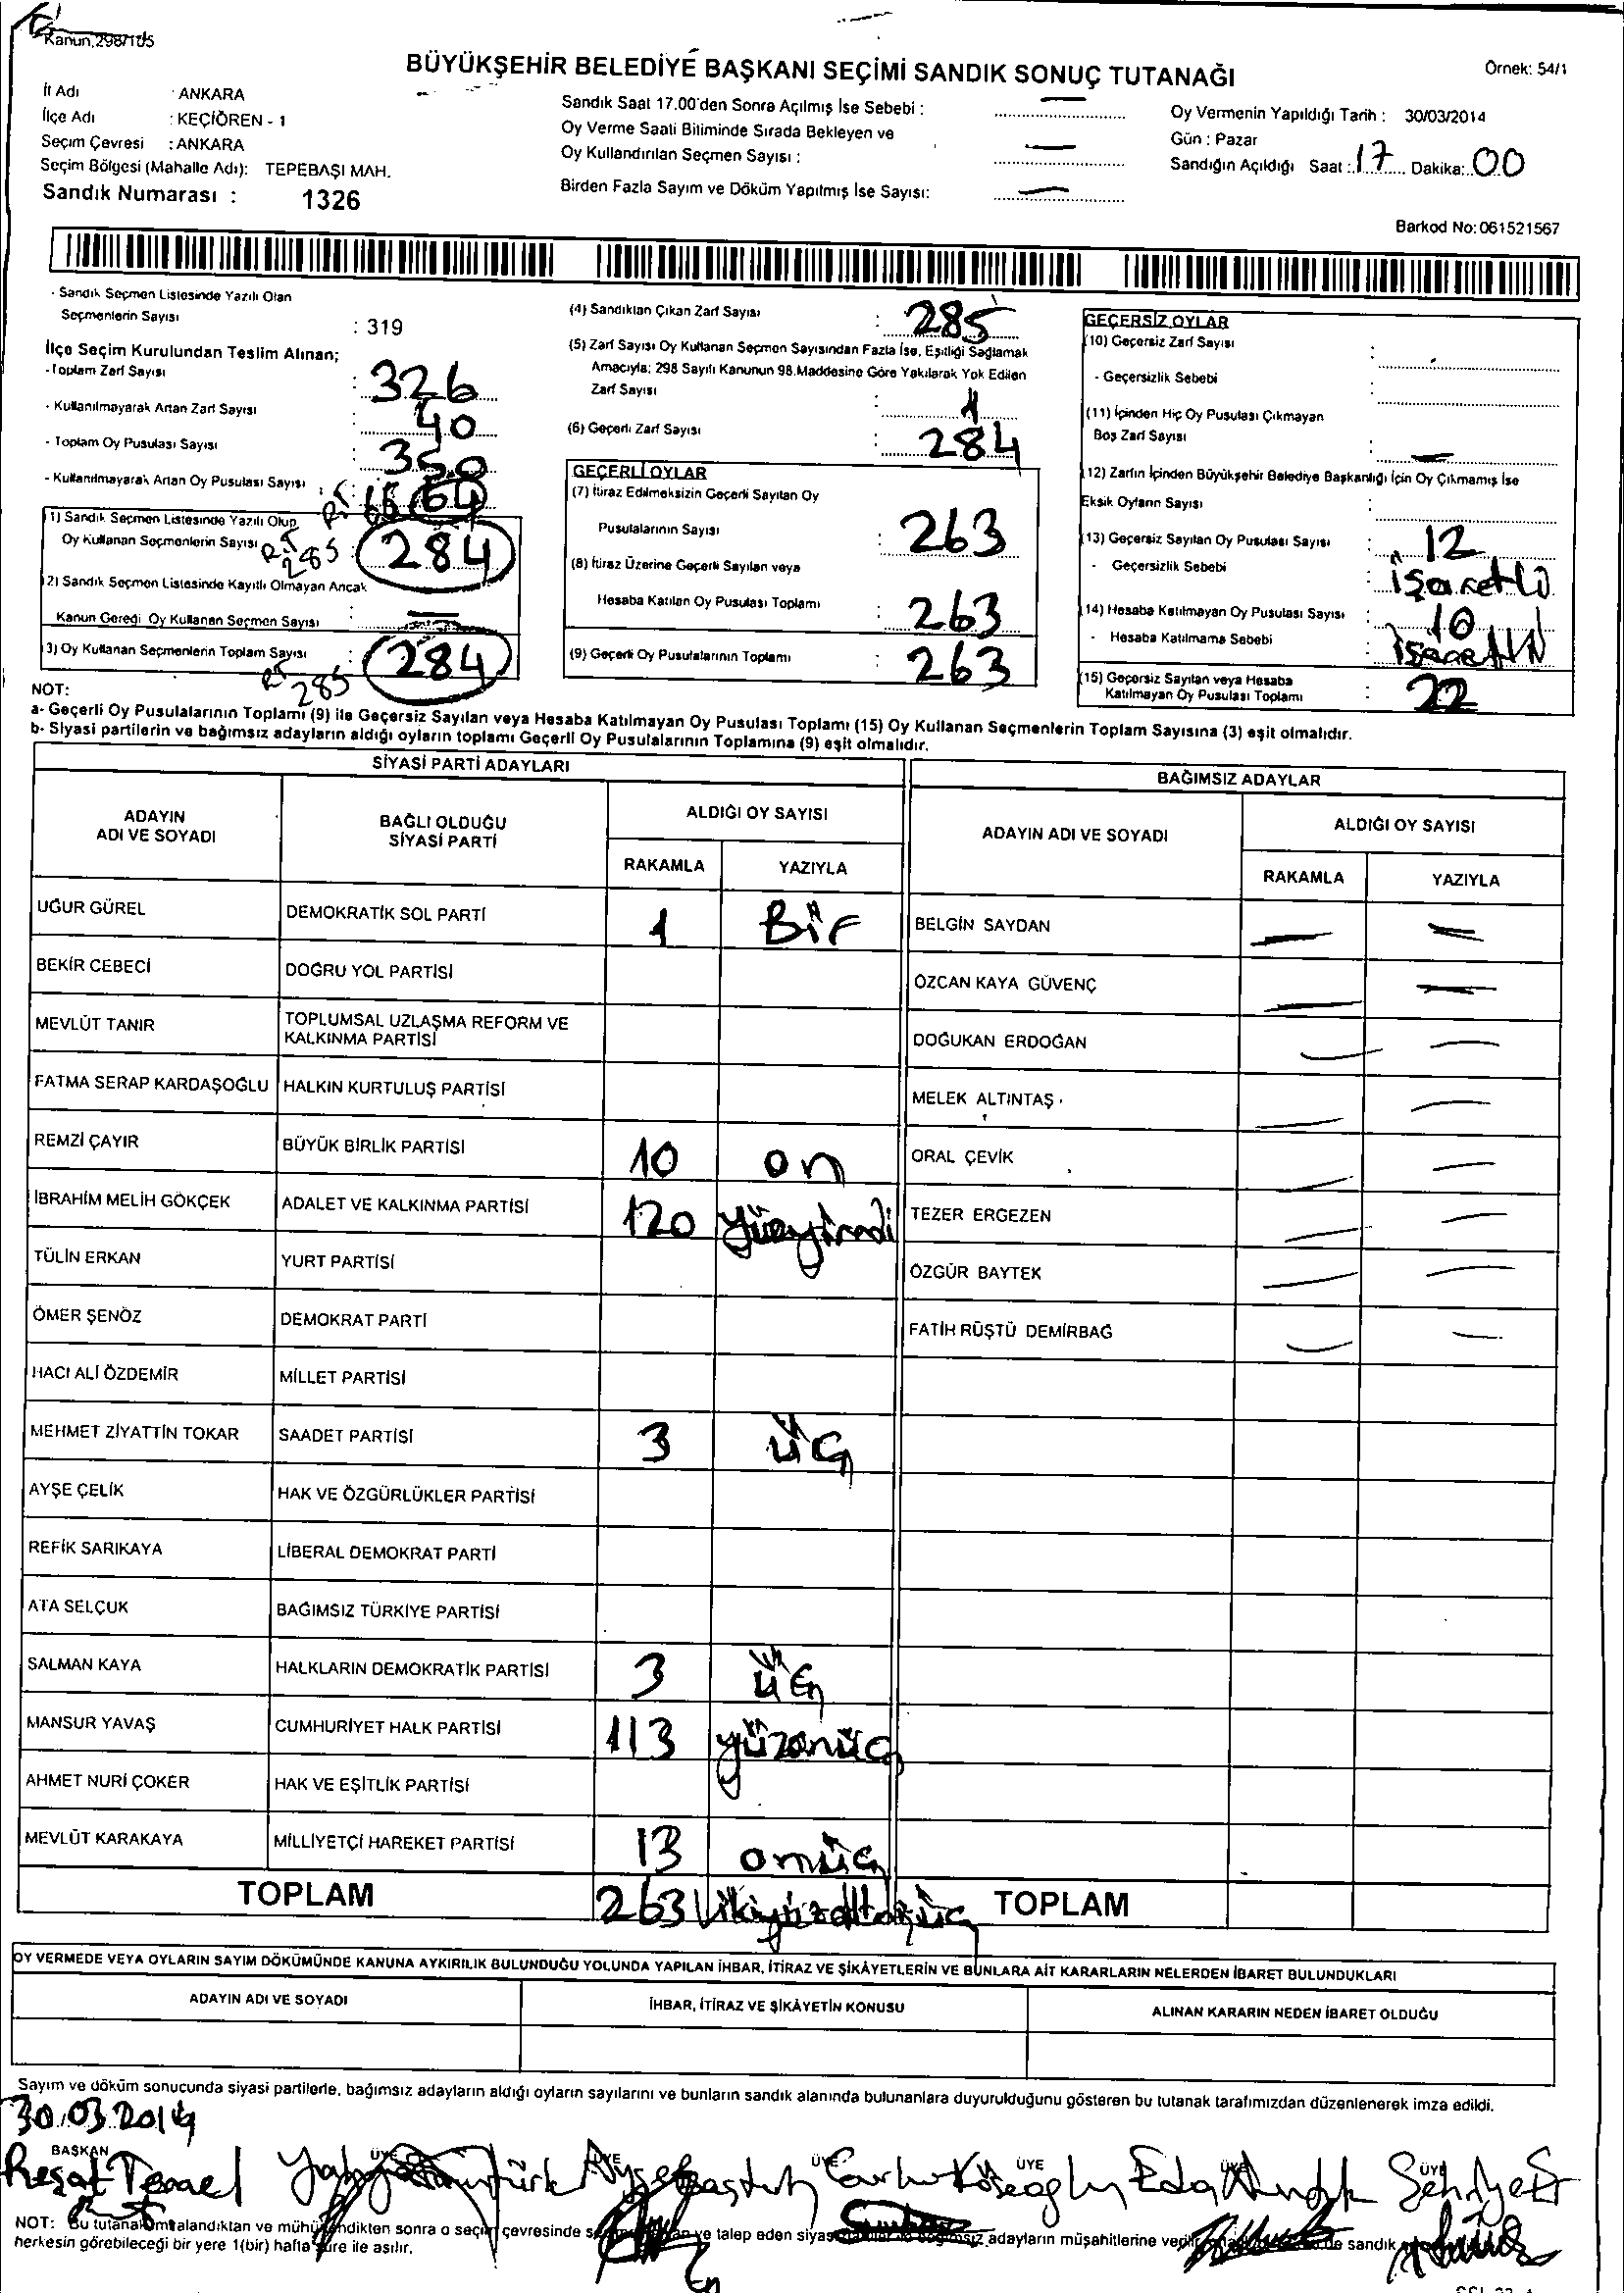 Kanun,298/105
BÜYÜKŞEHİR BELEDİYE BAŞKANI SEÇİMİ SANDIK SONUÇ TUTANAĞI
Örnek: 54/1
İl Adı : ANKARA
İlçe Adı : KEÇİÖREN - 1
Seçim Çevresi : ANKARA
Seçim Bölgesi (Mahalle Adı): TEPEBAŞI MAH.
Sandık Numarası : 1326
Sandık Saat 17.00'den Sonra Açılmış İse Sebebi :
Oy Verme Saati Bitiminde Sırada Bekleyen ve
Oy Kullandırılan Seçmen Sayısı :
Birden Fazla Sayım ve Döküm Yapılmış İse Sayısı:
Oy Vermenin Yapıldığı Tarih : 30/03/2014
Gün : Pazar
Sandığın Açıldığı Saat : 17 Dakika: 00
Barkod No: 061521567
- Sandık Seçmen Listesinde Yazılı Olan
Seçmenlerin Sayısı : 319
İlçe Seçim Kurulundan Teslim Alınan;
- Toplam Zarf Sayısı : 326
- Kullanılmayarak Artan Zarf Sayısı : 40
- Toplam Oy Pusulası Sayısı : 350
- Kullanılmayarak Artan Oy Pusulası Sayısı : 64
(1) Sandık Seçmen Listesinde Yazılı Olup
Oy Kullanan Seçmenlerin Sayısı : R.T 285 284
(2) Sandık Seçmen Listesinde Kayıtlı Olmayan Ancak
Kanun Gereği Oy Kullanan Seçmen Sayısı :
(3) Oy Kullanan Seçmenlerin Toplam Sayısı : 284
R.T 285
(4) Sandıktan Çıkan Zarf Sayısı : 285
(5) Zarf Sayısı Oy Kullanan Seçmen Sayısından Fazla İse, Eşitliği Sağlamak
Amacıyla; 298 Sayılı Kanunun 98.Maddesine Göre Yakılarak Yok Edilen
Zarf Sayısı : 1
(6) Geçerli Zarf Sayısı : 284
GEÇERLİ OYLAR
(7) İtiraz Edilmeksizin Geçerli Sayılan Oy
Pusulalarının Sayısı : 263
(8) İtiraz Üzerine Geçerli Sayılan veya
Hesaba Katılan Oy Pusulası Toplamı : 263
(9) Geçerli Oy Pusulalarının Toplamı : 263
GEÇERSİZ OYLAR
(10) Geçersiz Zarf Sayısı :
- Geçersizlik Sebebi :
(11) İçinden Hiç Oy Pusulası Çıkmayan
Boş Zarf Sayısı :
(12) Zarfın İçinden Büyükşehir Belediye Başkanlığı İçin Oy Çıkmamış İse
Eksik Oyların Sayısı :
(13) Geçersiz Sayılan Oy Pusulası Sayısı : 12
- Geçersizlik Sebebi : işaretli
(14) Hesaba Katılmayan Oy Pusulası Sayısı : 10
- Hesaba Katılmama Sebebi : işaretli
(15) Geçersiz Sayılan veya Hesaba
Katılmayan Oy Pusulası Toplamı : 22
NOT:
a- Geçerli Oy Pusulalarının Toplamı (9) ile Geçersiz Sayılan veya Hesaba Katılmayan Oy Pusulası Toplamı (15) Oy Kullanan Seçmenlerin Toplam Sayısına (3) eşit olmalıdır.
b- Siyasi partilerin ve bağımsız adayların aldığı oyların toplamı Geçerli Oy Pusulalarının Toplamına (9) eşit olmalıdır.
SİYASİ PARTİ ADAYLARI
BAĞIMSIZ ADAYLAR
ADAYIN ADI VE SOYADI
BAĞLI OLDUĞU SİYASİ PARTİ
ALDIĞI OY SAYISI
RAKAMLA YAZIYLA
ADAYIN ADI VE SOYADI
ALDIĞI OY SAYISI
RAKAMLA YAZIYLA
UĞUR GÜREL DEMOKRATİK SOL PARTİ 1 Bir BELGİN SAYDAN
BEKİR CEBECİ DOĞRU YOL PARTİSİ ÖZCAN KAYA GÜVENÇ
MEVLÜT TANIR TOPLUMSAL UZLAŞMA REFORM VE KALKINMA PARTİSİ DOĞUKAN ERDOĞAN
FATMA SERAP KARDAŞOĞLU HALKIN KURTULUŞ PARTİSİ MELEK ALTINTAŞ
REMZİ ÇAYIR BÜYÜK BİRLİK PARTİSİ 10 on ORAL ÇEVİK
İBRAHİM MELİH GÖKÇEK ADALET VE KALKINMA PARTİSİ 120 yüzyirmi TEZER ERGEZEN
TÜLİN ERKAN YURT PARTİSİ ÖZGÜR BAYTEK
ÖMER ŞENÖZ DEMOKRAT PARTİ FATİH RÜŞTÜ DEMİRBAĞ
HACI ALİ ÖZDEMİR MİLLET PARTİSİ
MEHMET ZİYATTİN TOKAR SAADET PARTİSİ 3 üç
AYŞE ÇELİK HAK VE ÖZGÜRLÜKLER PARTİSİ
REFİK SARIKAYA LİBERAL DEMOKRAT PARTİ
ATA SELÇUK BAĞIMSIZ TÜRKİYE PARTİSİ
SALMAN KAYA HALKLARIN DEMOKRATİK PARTİSİ 3 üç
MANSUR YAVAŞ CUMHURİYET HALK PARTİSİ 113 yüzonüç
AHMET NURİ ÇOKER HAK VE EŞİTLİK PARTİSİ
MEVLÜT KARAKAYA MİLLİYETÇİ HAREKET PARTİSİ 13 onüç
TOPLAM 263 ikiyüzaltmışüç TOPLAM
OY VERMEDE VEYA OYLARIN SAYIM DÖKÜMÜNDE KANUNA AYKIRILIK BULUNDUĞU YOLUNDA YAPILAN İHBAR, İTİRAZ VE ŞİKÂYETLERİN VE BUNLARA AİT KARARLARIN NELERDEN İBARET BULUNDUKLARI
ADAYIN ADI VE SOYADI İHBAR, İTİRAZ VE ŞİKÂYETİN KONUSU ALINAN KARARIN NEDEN İBARET OLDUĞU
Sayım ve döküm sonucunda siyasi partilerle, bağımsız adayların aldığı oyların sayılarını ve bunların sandık alanında bulunanlara duyurulduğunu gösteren bu tutanak tarafımızdan düzenlenerek imza edildi.
30.03.2014
BAŞKAN ÜYE ÜYE ÜYE ÜYE ÜYE ÜYE
Reşat Temel
NOT: Bu tutanak imzalandıktan ve mühürlendikten sonra o seçim çevresinde ve talep eden siyasi adayların müşahitlerine sandık
herkesin görebileceği bir yere 1(bir) hafta süre ile asılır.